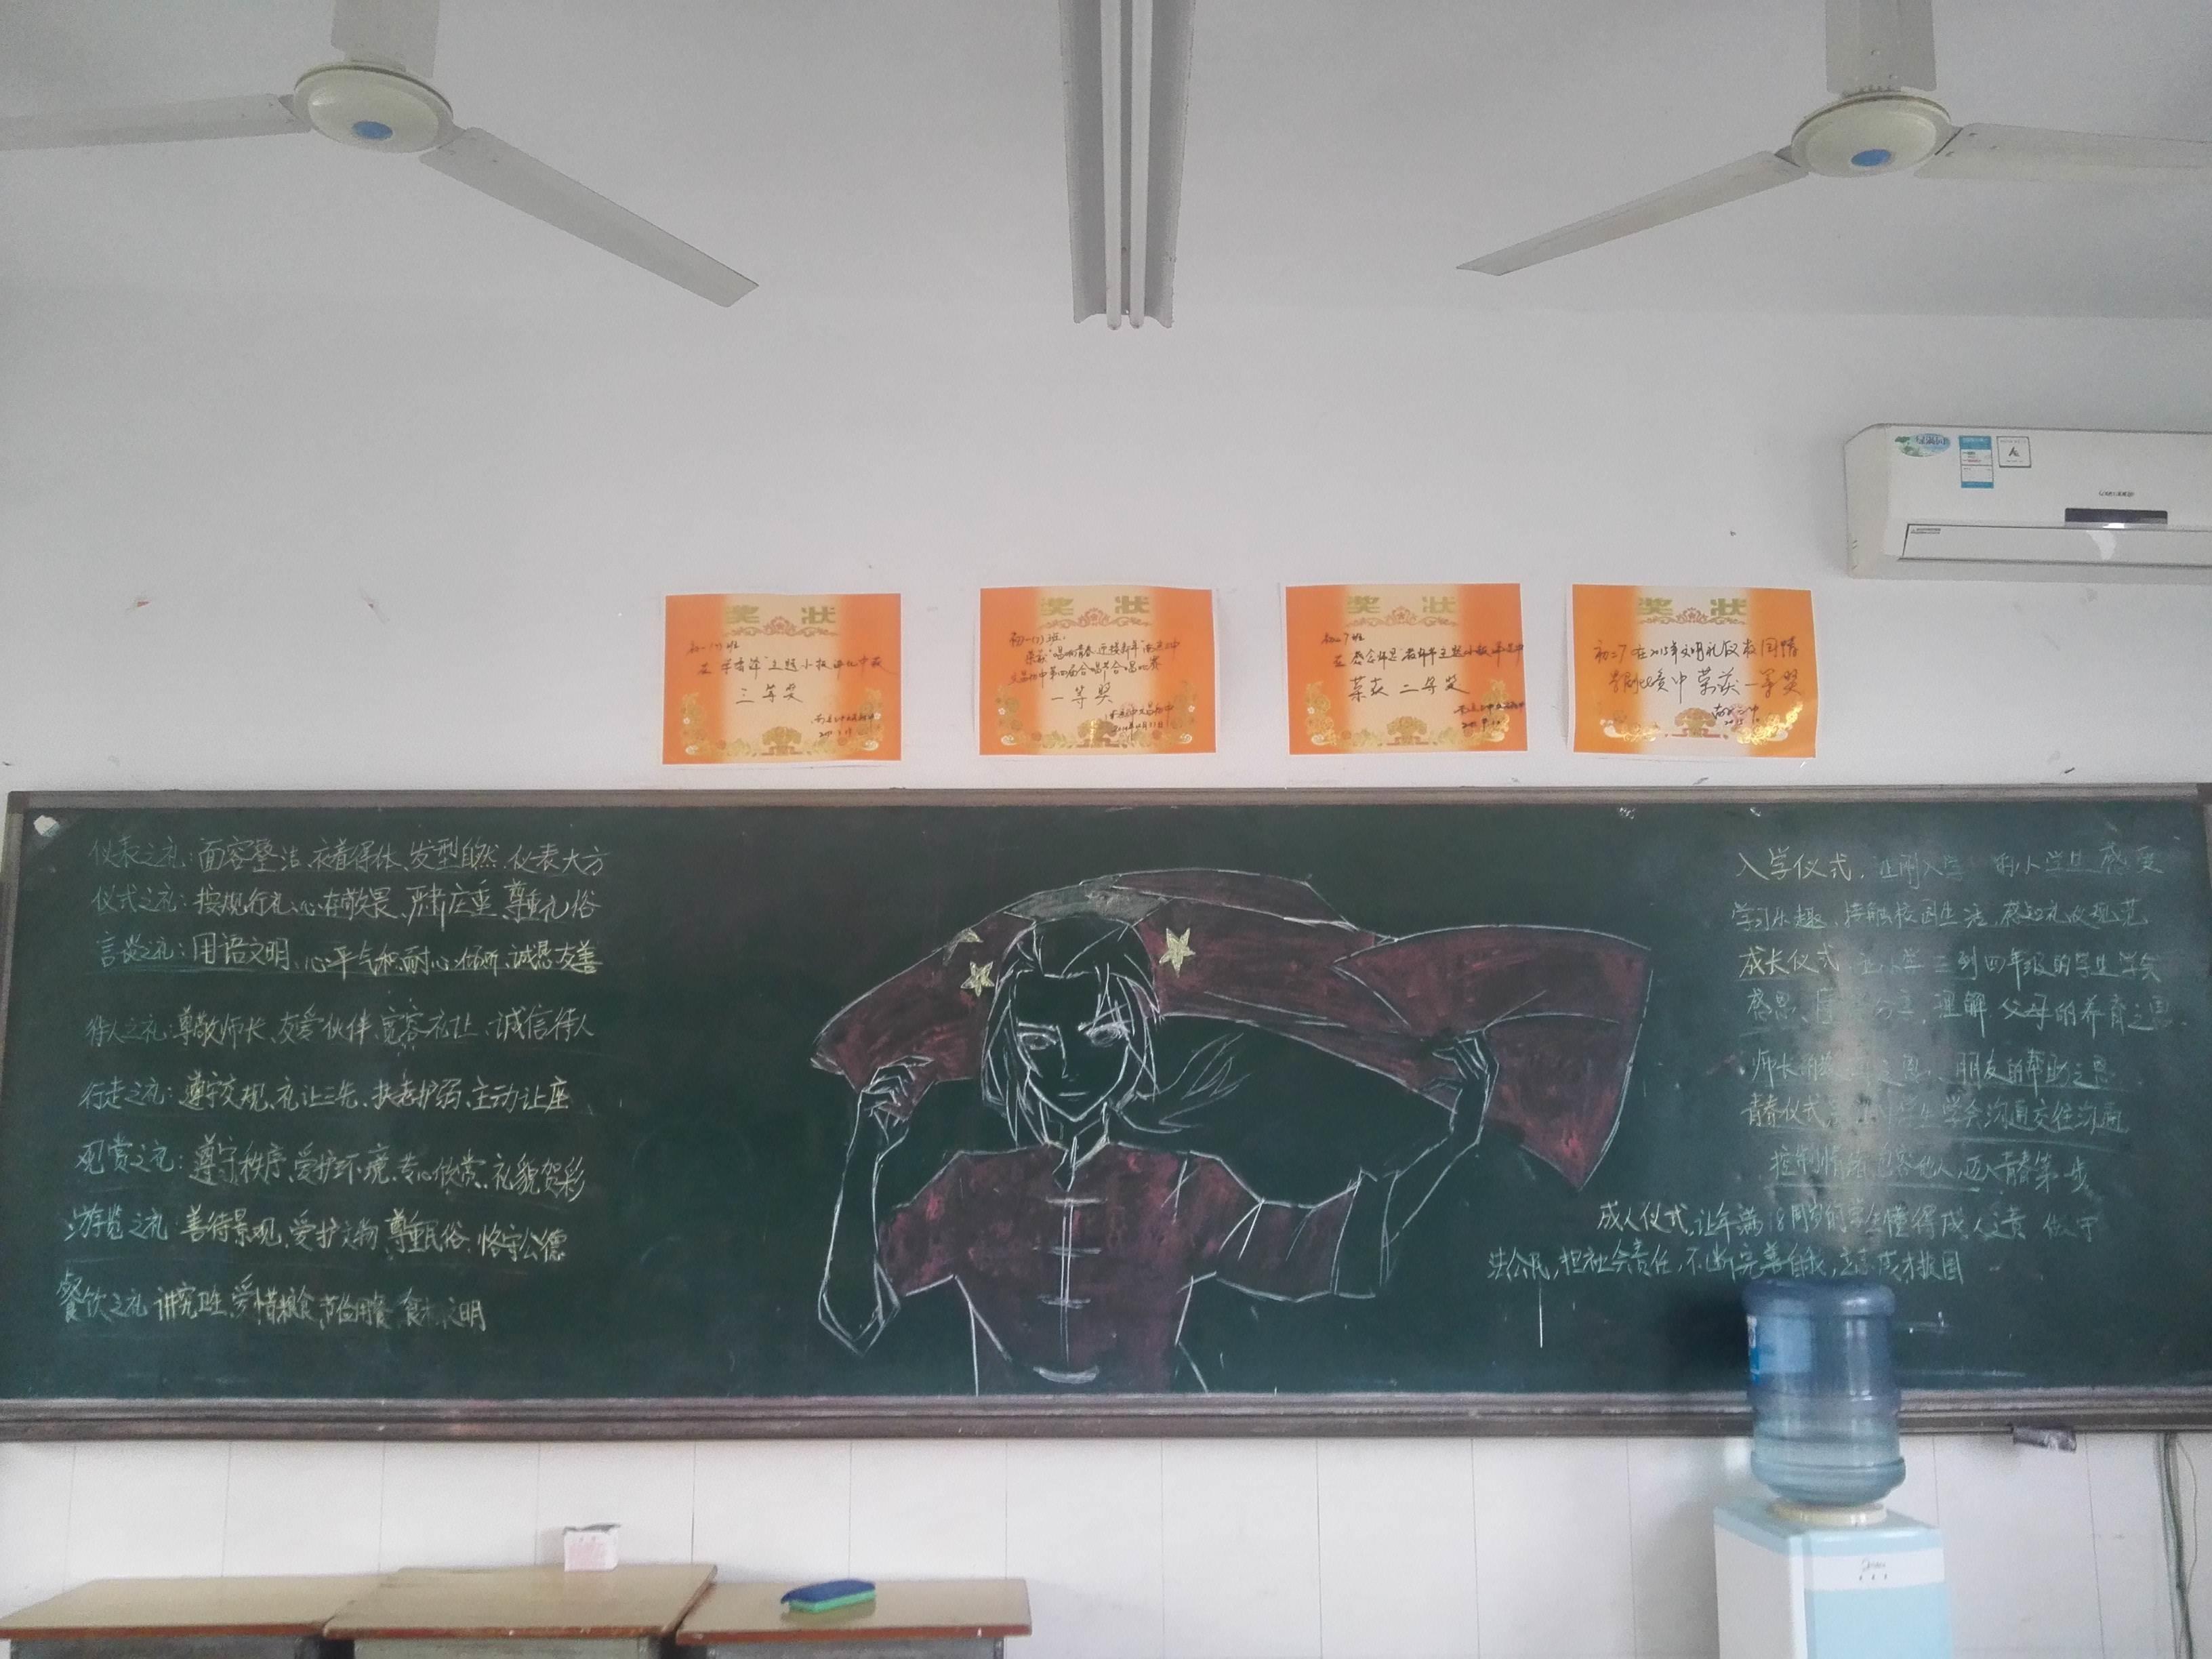 奖状
初一(7)班
三等奖
奖状
初一(7)班:
一等奖
奖状
初二7班
荣获 二等奖
奖状
初二7 在2015年文明礼仪校园情
中 荣获 一等奖
仪表之礼:面容整洁、衣着得体、发型自然、仪表大方
仪式之礼:按规行礼、心存敬畏、严肃庄重、尊重礼俗
言谈之礼:用语文明、心平气和、耐心倾听、诚恳友善
待人之礼:尊敬师长、友爱伙伴、宽容礼让、诚信待人
行走之礼:遵守交规、礼让三先、扶老护弱、主动让座
观赏之礼:遵守秩序、爱护环境、专心欣赏、礼貌喝彩
游览之礼:善待景观、爱护文物、尊重民俗、恪守公德
餐饮之礼 讲究卫生、爱惜粮食、节俭用餐、食相文明
入学仪式,让刚入学 的小学生感受
学习乐趣,接触校园生活,感知礼仪规范
成长仪式,让小学三到四年级的学生学会
感恩、 理解父母的养育之恩、
师长的 之恩、朋友的帮助之恩
青春仪式 学生学会沟通交往沟通
控制情绪 宽容他人,迈入青春第一步
成人仪式,让年满18周岁的学生懂得成人之责 做守
法公民,担社会责任,不断完善自我,立志成才报国